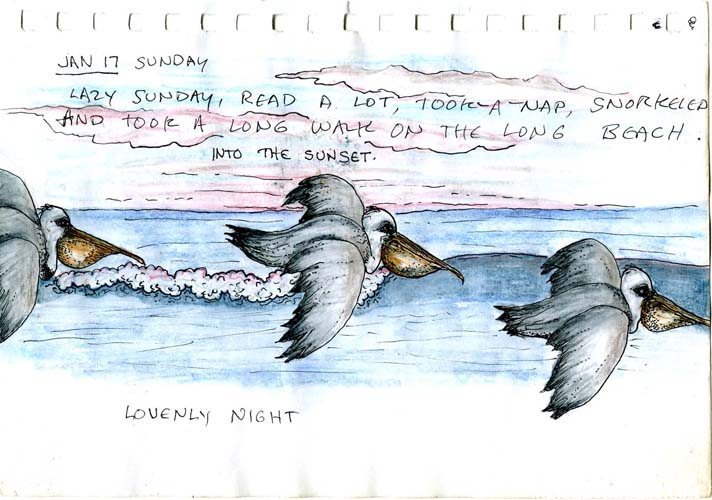 JAN 17 SUNDAY
LAZY SUNDAY, READ A LOT, TOOK A NAP, SNORKELED
AND TOOK A LONG WALK ON THE LONG BEACH.
INTO THE SUNSET.
LOVENLY NIGHT